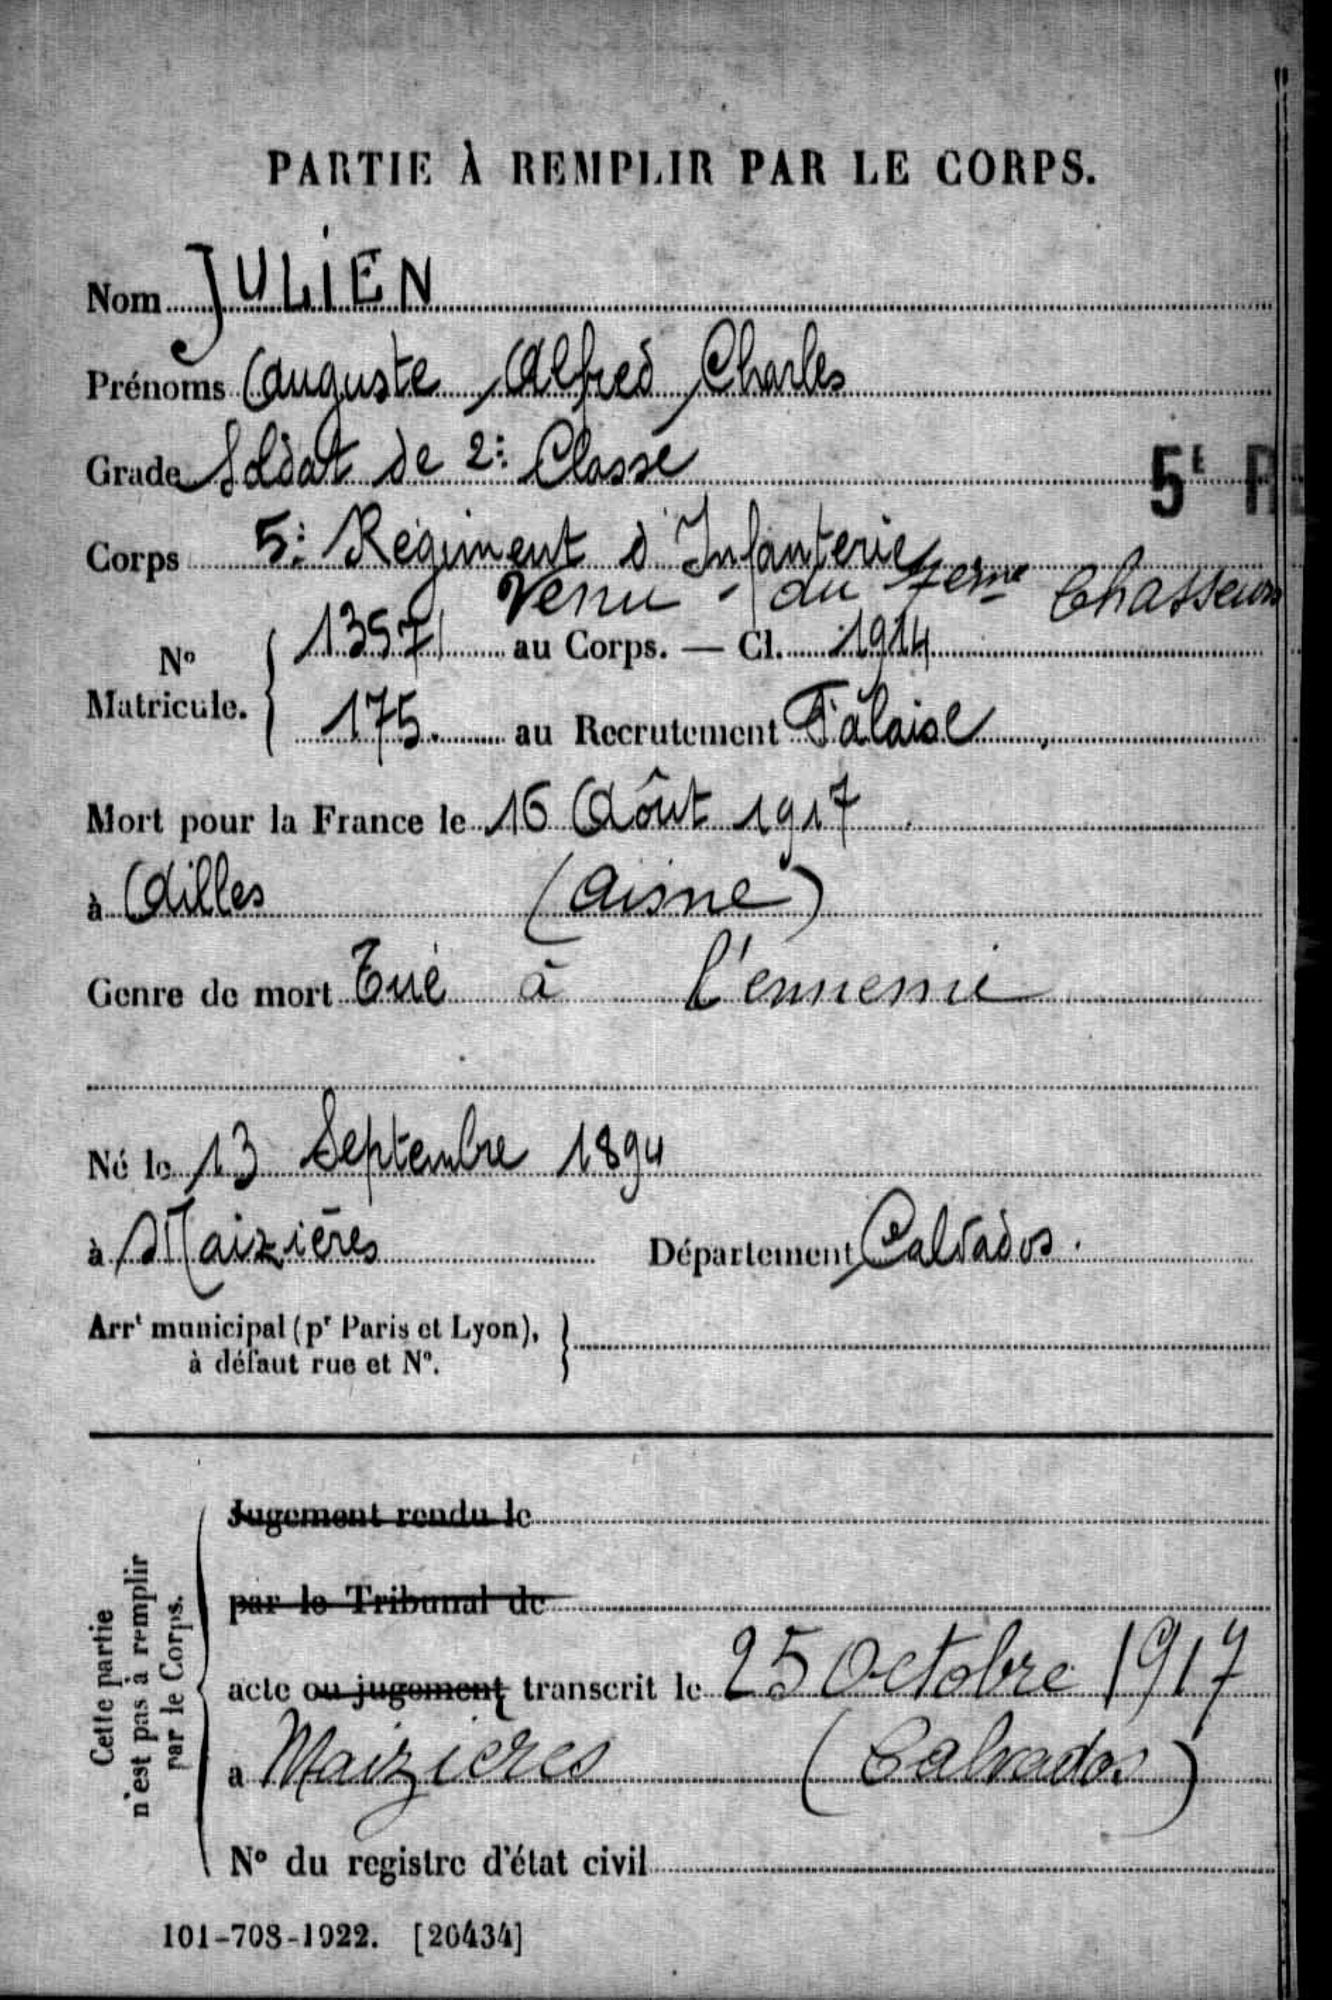 PARTIE À REMPLIR PAR LE CORPS.
Nom JULIEN
Prénoms Auguste Alfred Charles
Grade Soldat de 2e Classe
5E RE
Corps 5e Régiment d'Infanterie
Venu du 7eme Chasseurs
No Matricule. 13571 au Corps. — Cl. 1914
175. au Recrutement Falaise
Mort pour la France le 16 Août 1917
à Ailles (Aisne)
Genre de mort Tué à l'ennemi
Né le 13 Septembre 1894
à Maizières Département Calvados.
Arrt municipal (pr Paris et Lyon),
à défaut rue et No.
Cette partie
n'est pas à remplir
par le Corps.
Jugement rendu le
par le Tribunal de
acte ou jugement transcrit le 25 Octobre 1917
a Maizières (Calvados)
No du registre d'état civil
101-708-1922. [26434]